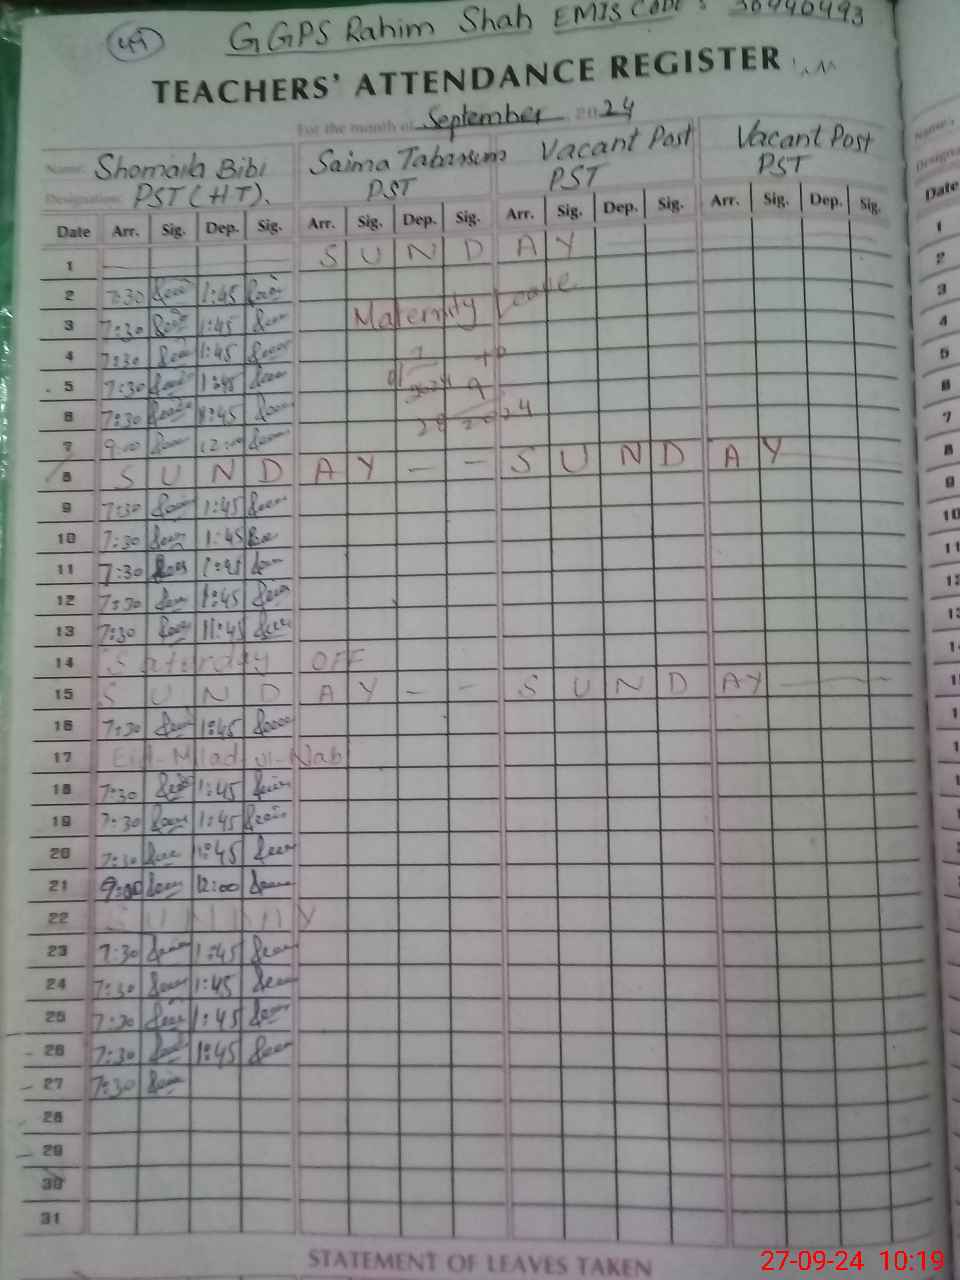 49 GGPS Rahim Shah EMIS CODE : 38440493
TEACHERS' ATTENDANCE REGISTER
For the month of September 2024
Name: Shomaila Bibi Saima Tabassum Vacant Post Vacant Post
Designation: PST (HT). PST PST PST
Date Arr. Sig. Dep. Sig. Arr. Sig. Dep. Sig. Arr. Sig. Dep. Sig. Arr. Sig. Dep. Sig.
1 S U N D A Y
2 7:30 1:45
3 7:30 1:45 Maternity Leave
4 7:30 1:45
5 7:30 1:45
6 7:30 1:45
7 9:00 12:00
8 S U N D A Y - - S U N D A Y
9 7:30 1:45
10 7:30 1:45
11 7:30 1:45
12 7:30 1:45
13 7:30 11:45
14 Saturday OFF
15 S U N D A Y - - S U N D A Y
16 7:30 1:45
17 Eid-Milad-ul-Nabi
18 7:30 1:45
19 7:30 1:45
20 7:30 1:45
21 9:00 12:00
22 S U N D A Y
23 7:30 1:45
24 7:30 1:45
25 7:30 1:45
26 7:30 1:45
27 7:30
28
29
30
31
STATEMENT OF LEAVES TAKEN
27-09-24 10:19